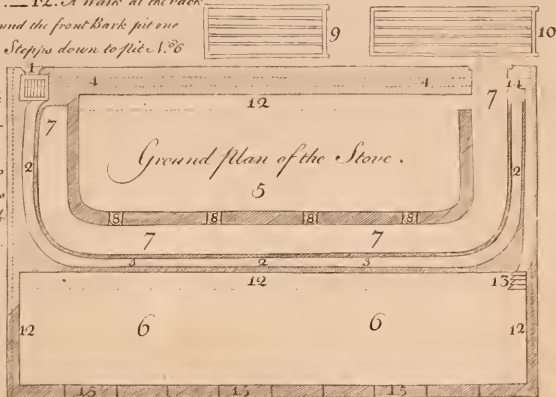 12. A Walk at the back
und the front Bark pit one
Stepps down to pit N.º 6
9
10
1
4
4
12
7
14
7
2
2
Ground Plan of the Stove.
5
8
8
8
8
7
7
3
2
3
12
13
12
6
6
12
15
15
15